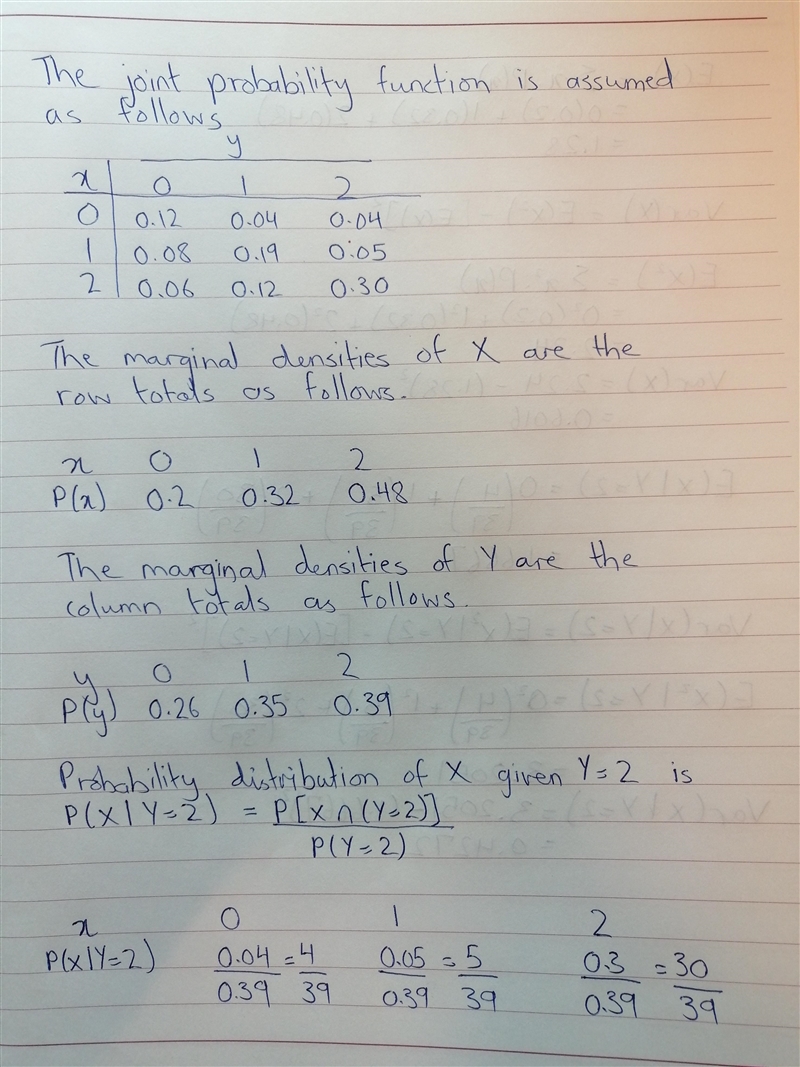 The joint probability function is assumed
as follows
y
x 0 1 2
0 0.12 0.04 0.04
1 0.08 0.19 0.05
2 0.06 0.12 0.30
The marginal densities of X are the
row totals as follows.
x 0 1 2
P(x) 0.2 0.32 0.48
The marginal densities of Y are the
column totals as follows.
y 0 1 2
P(y) 0.26 0.35 0.39
Probability distribution of X given Y=2 is
P(X|Y=2) = P[X∩(Y=2)]
P(Y=2)
x 0 1 2
P(x|Y=2) 0.04 = 4 0.05 = 5 0.3 = 30
0.39 39 0.39 39 0.39 39